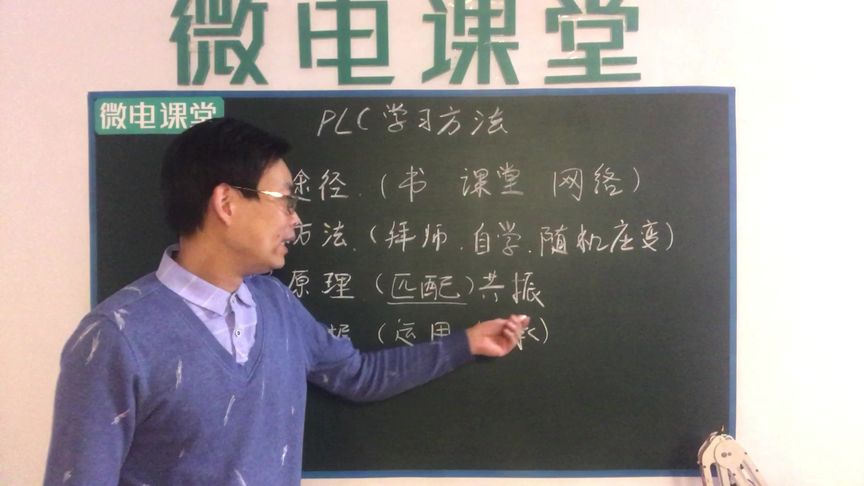 微电课堂
微电课堂
PLC学习方法
途径.(书 课堂 网络)
方法.(拜师.自学.随机应变)
原理(匹配)共振
(运用